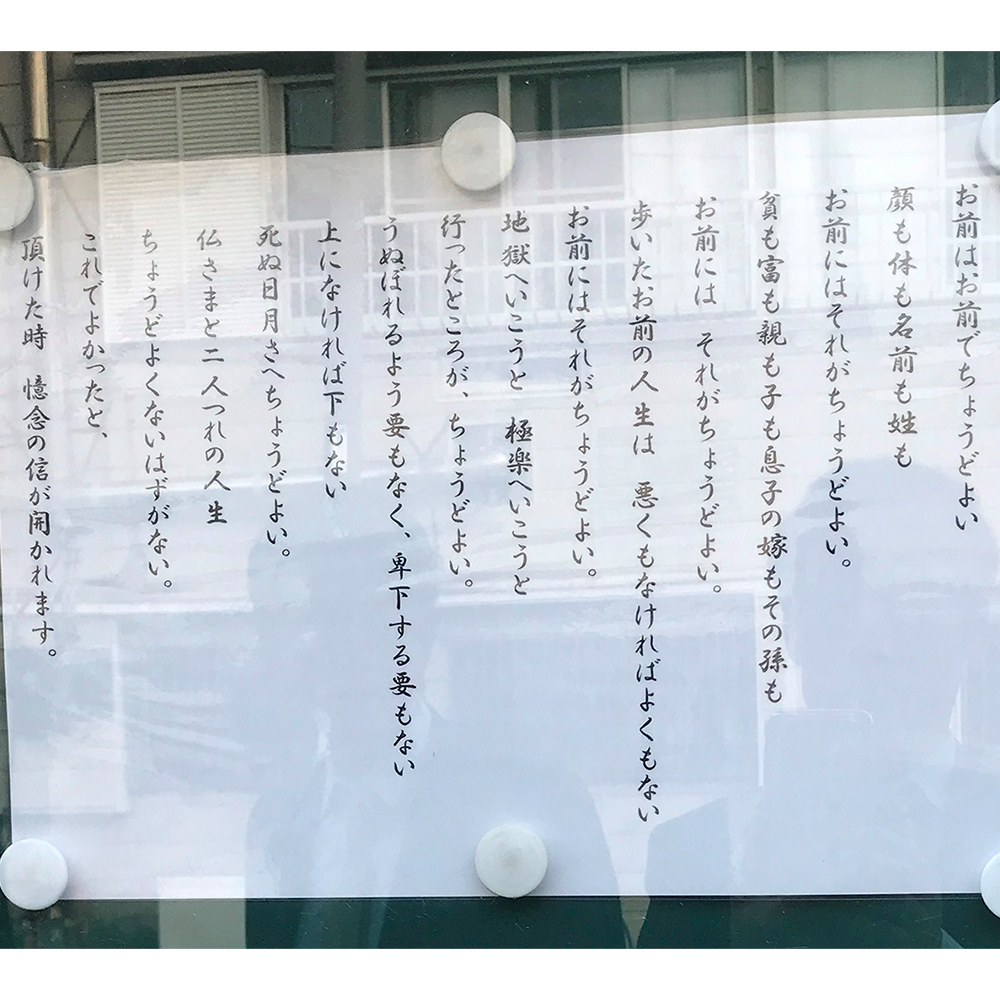 お前はお前でちょうどよい
顔も体も名前も姓も
お前にはそれがちょうどよい。
貧も富も親も子も息子の嫁もその孫も
お前には　それがちょうどよい。
歩いたお前の人生は　悪くもなければよくもない
お前にはそれがちょうどよい。
地獄へいこうと　極楽へいこうと
行ったところが、ちょうどよい。
うぬぼれるよう要もなく、卑下する要もない
上になければ下もない
死ぬ日月さへちょうどよい。
仏さまと二人つれの人生
ちょうどよくないはずがない。
これでよかったと、
頂けた時　憶念の信が開かれます。